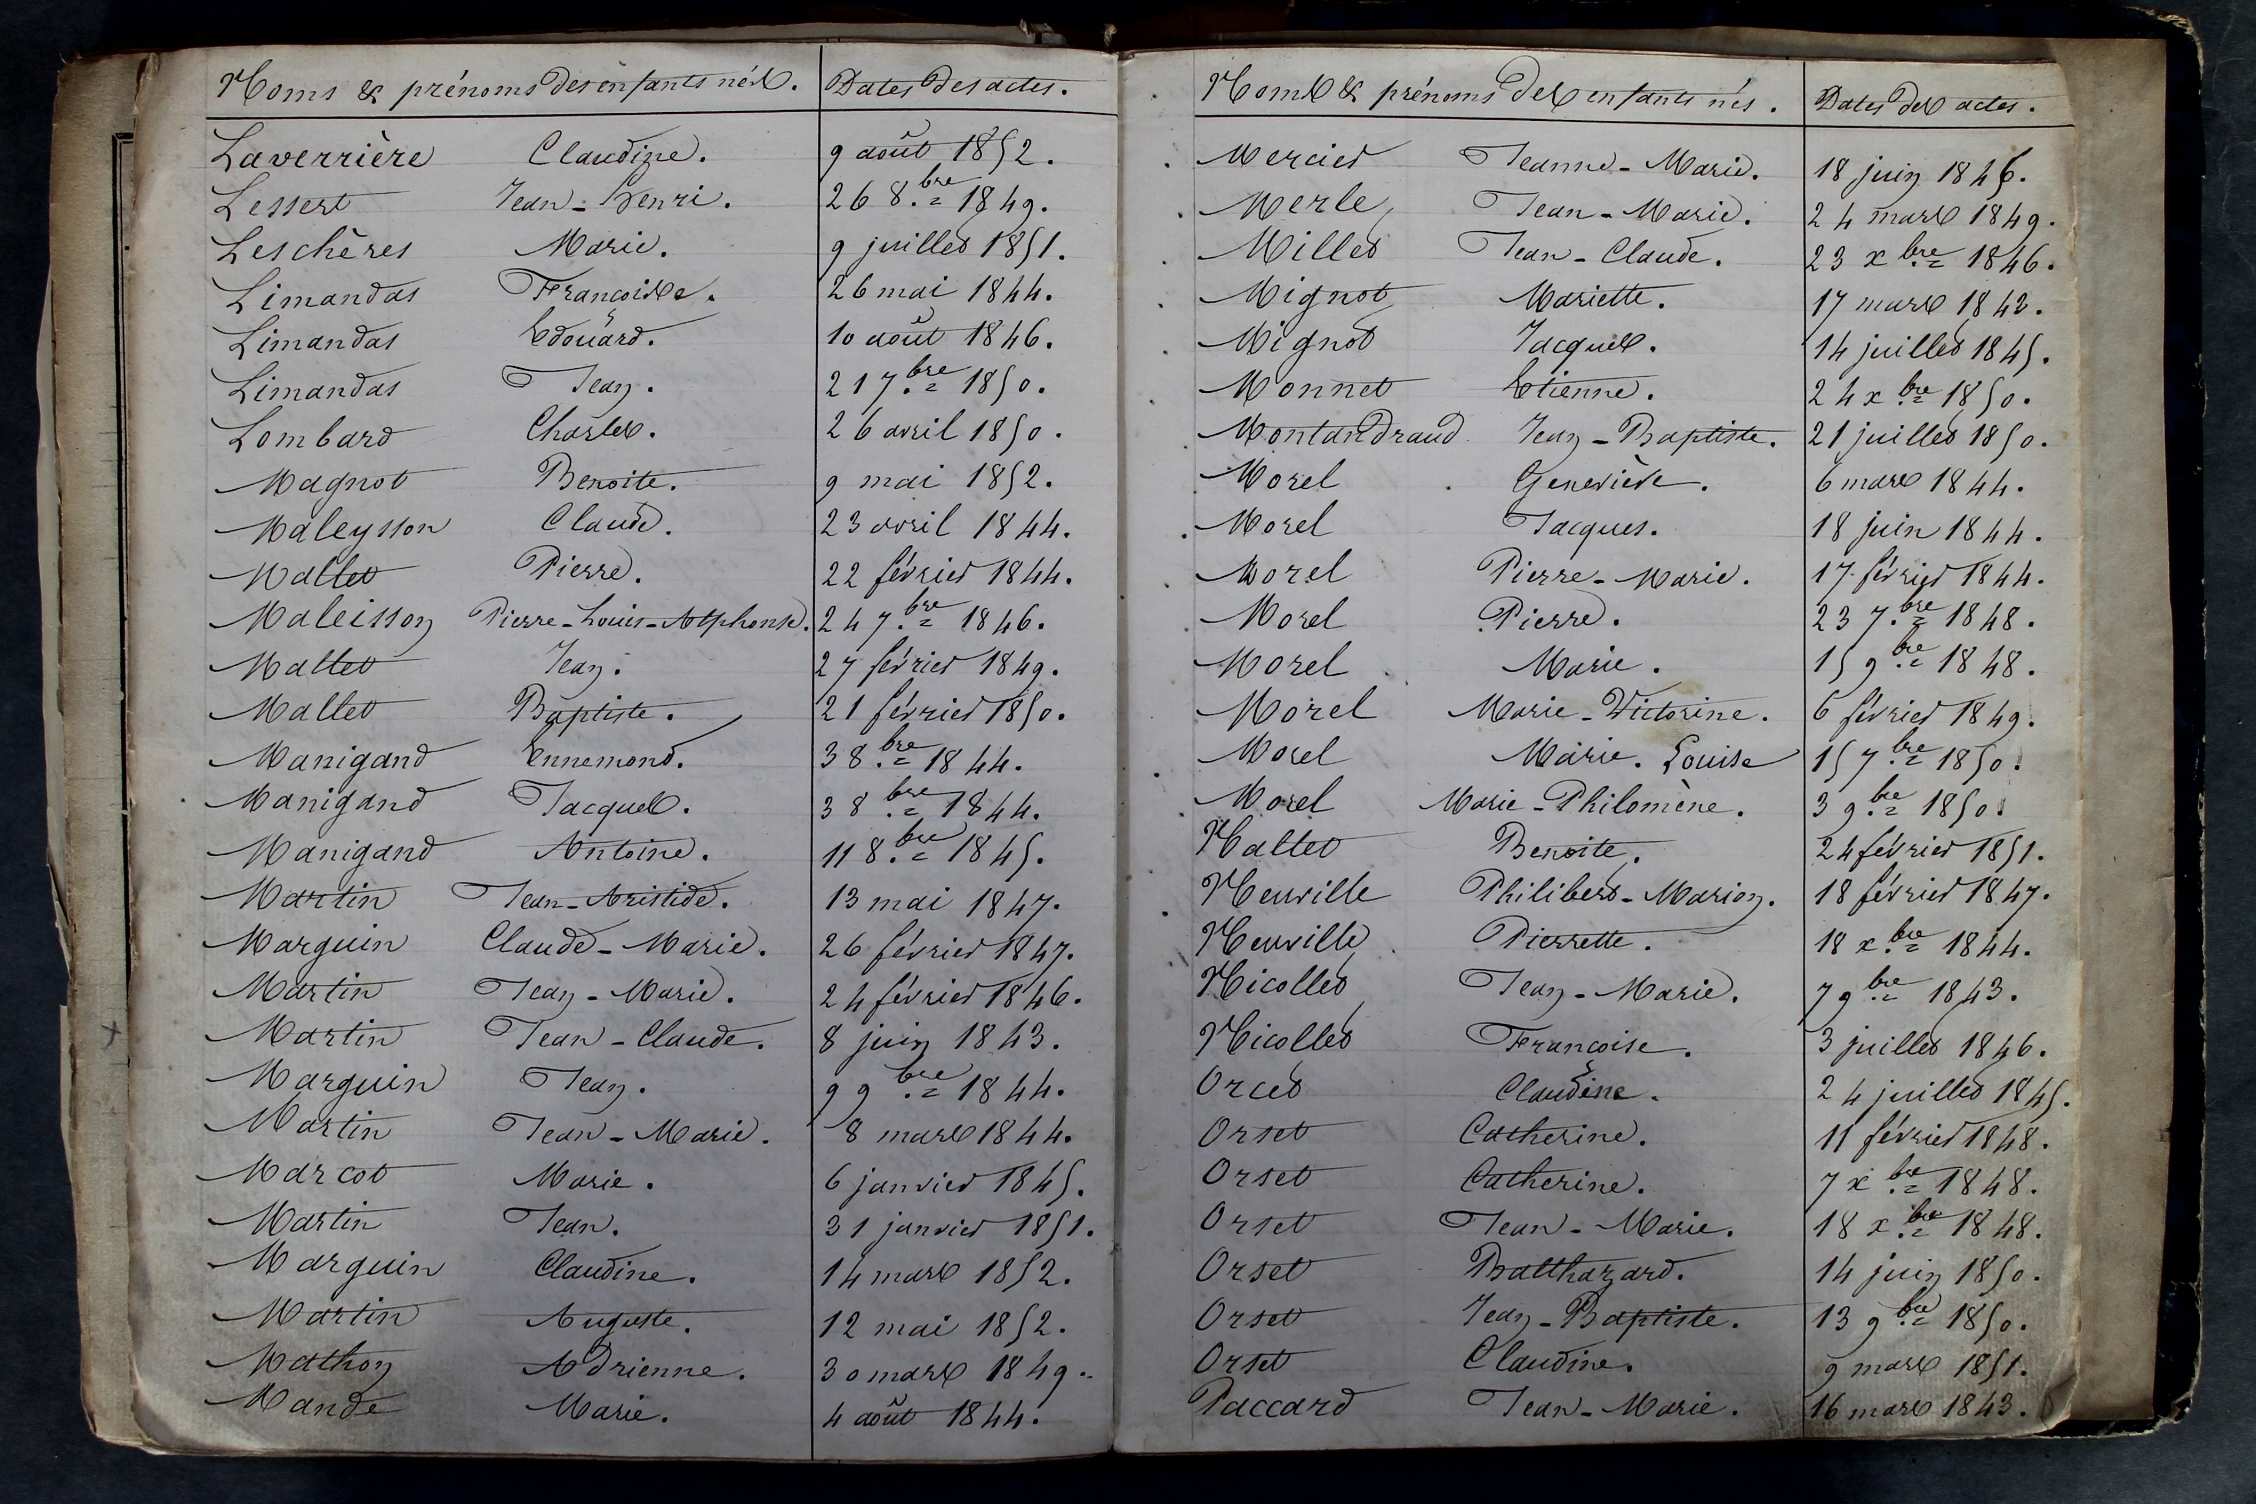 Noms & prénoms des enfants nés. Dates des actes.
Laverrière Claudine. 9 août 1852.
Lessert Jean-Henri. 26 8.bre 1849.
Leschères Marie. 9 juillet 1851.
Limandas Françoise. 26 mai 1844.
Limandas Edouard. 10 août 1846.
Limandas Jean. 21 7.bre 1850.
Lombard Charles. 26 avril 1850.
Magnot Benoite. 9 mai 1852.
Maleysson Claude. 23 avril 1844.
Mallet Pierre. 22 février 1844.
Maleisson Pierre-Louis-Alphonse. 24 7.bre 1846.
Mallet Jean. 27 février 1849.
Mallet Baptiste. 21 février 1850.
Manigand Ennemond. 3 8.bre 1844.
Manigand Jacques. 3 8.bre 1844.
Manigand Antoine. 11 8.bre 1845.
Martin Jean-Aristide. 13 mai 1847.
Marguin Claude-Marie. 26 février 1847.
Martin Jean-Marie. 24 février 1846.
Martin Jean-Claude. 8 juin 1843.
Marguin Jean. 9 9.bre 1844.
Martin Jean-Marie. 8 mars 1844.
Marcot Marie. 6 janvier 1845.
Martin Jean. 31 janvier 1851.
Marguin Claudine. 14 mars 1852.
Martin Auguste. 12 mai 1852.
Mathon Adrienne. 30 mars 1849.
Mande Marie. 4 août 1844.
Noms & prénoms des enfants nés. Dates des actes.
Mercier Jeanne-Marie. 18 juin
Merle Jean-Marie. 24 mars 1849.
Millet Jean-Claude. 23 xbre 1846.
Mignot Mariette. 17 mars 1843.
Mignot Jacques. 14 juillet 1845.
Monnet Etienne. 24 xbre 1850.
Montandraud Jean-Baptiste. 21 juillet 1850.
Morel Geneviève. 6 mars 1844.
Morel Jacques. 18 juin 1844.
Morel Pierre-Marie. 17 février 1844.
Morel Pierre. 23 7.bre 1848.
Morel Marie. 15 9.bre 1848.
Morel Marie-Victorine. 6 février 1849.
Morel Marie. Louise 15 7.bre 1850.
Morel Marie-Philomène. 3 9.bre 1850.
Nallet Benoite. 24 février 1851.
Neuville Philibert-Marion. 18 février 1847.
Neuville Pierrette. 18 x.bre 1844.
Nicollet Jean-Marie. 7 9.bre 1843.
Nicollet Françoise. 3 juillet 1846.
Orcet Claudine. 24 juillet 1845.
Orset Catherine. 11 février 1848.
Orset Catherine. 7 x.bre 1848.
Orset Jean-Marie. 18 x.bre 1848.
Orset Balthazard. 14 juin 1850.
Orset Jean-Baptiste. 13 9.bre 1850.
Orset Claudine. 9 mars 1851.
Paccard Jean-Marie. 16 mars 1843.